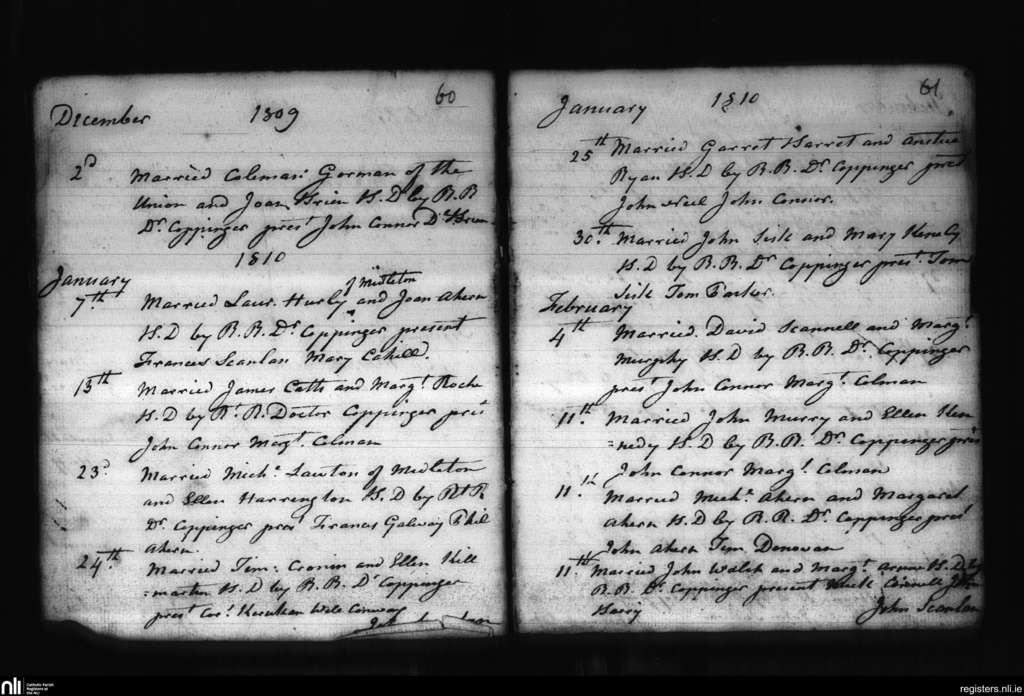 60
December 1809
2d Married Colman Gorman of the
Union and Joan H.D by R.R
Dr. Coppinger prest. John Connor
1810
January
of Midleton
7th Married Laur. Hurly and Joan Ahern
H.D by R.R.Dr. Coppinger present
Francis Scanlan Mary Cahill.
13th Married James Catts and Margt. Roche
H.D by Rt. R. Doctor Coppinger prest
John Connor Margt. Colman
23d Married Michl. Lawton of Midleton
and Ellen Harrington H.D by Rt R
Dr. Coppinger prest Francis Galway Phil
Ahern.
24th. Married Tim: Cronin and Ellen Kill
=martin H.D by R.R. Dr Coppinger
prest Cors. Will Conway
61
January 1810
25th Married Garret Barret and
Ryan H.D by R.R. Dr. Coppinger prest
John Neil John Connor.
30th. Married John Sisk and Mary
H.D by R.R. Dr Coppinger prest. Tom
Sisk Tom Parker.
February
4th Married. David Scannell and Margt.
Murphy H.D by R.R. Dr. Coppinger
prest John Connor Margt. Colman
11th. Married John Murry and Ellen Ken
=nedy H.D by R.R. Dr. Coppinger prest
John Connor Margt. Colman
11th. Married Michl. Ahern and Margaret
Ahern H.D by R.R. Dr. Coppinger prest
John Ahern Tim Donovan
11th Married John Walsh and Margt. H.D by
R.R. Dr. Coppinger present John
Barry John Scanlan
nli
Catholic Parish
Registers at
the NLI
registers.nli.ie